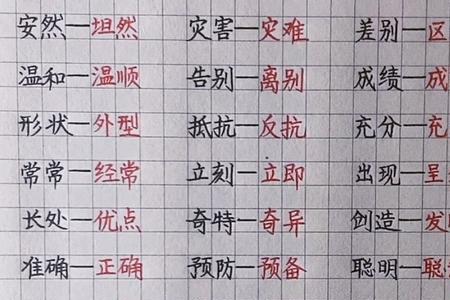 安然—坦然 灾害—灾难 差别—区
温和—温顺 告别—离别 成绩—成
形状—外型 抵抗—反抗 充分—充
常常—经常 立刻—立即 出现—呈
长处—优点 奇特—奇异 创造—发
准确—正确 预防—预备 聪明—聪